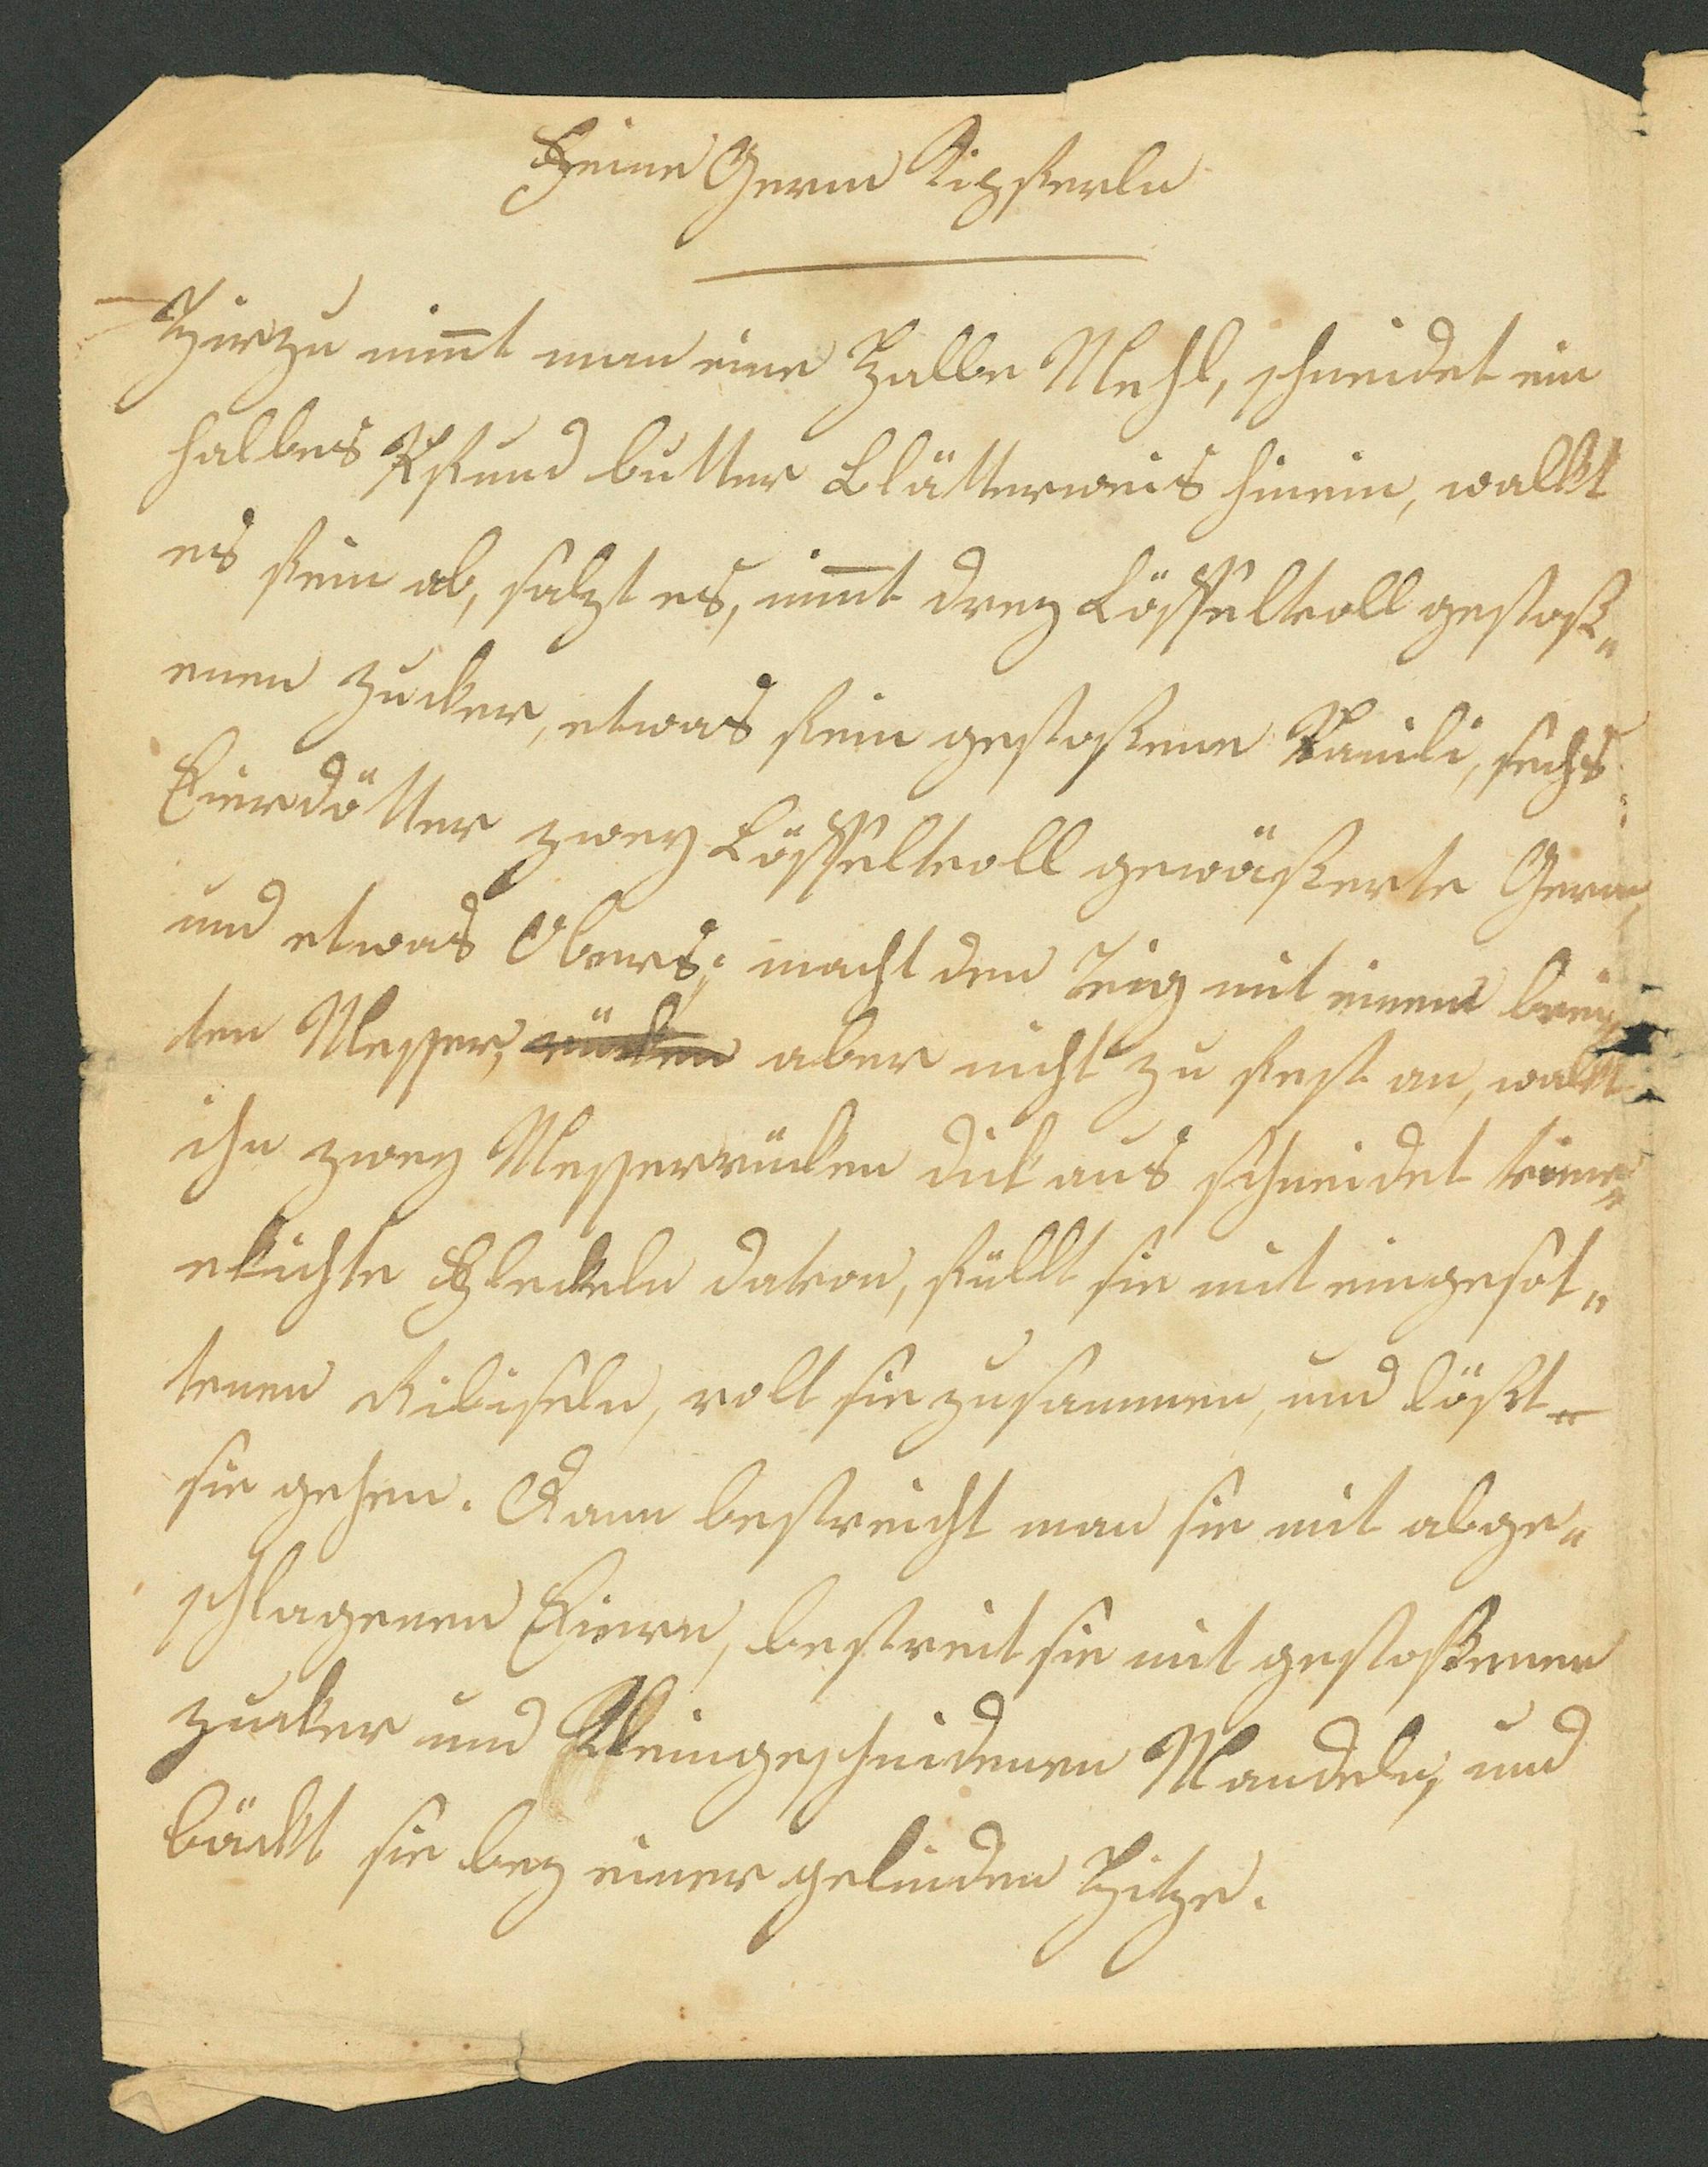 Feine Germ Kipferln
Hierzu nim̅t man eine Halbe Mehl, schneidet ein
halbes Pfund butter Blätterweis hinein, walkt
es fein ab, salzt es, nim̅t drey Löffelvoll gestoß„
enen Zucker, etwas fein gestoßene Vanili, sechs
Eierdötter zwey Löffelvoll gewäßerte Germ,
und etwas Obers; macht den Teig mit einem brei„
ten Messer, rücken aber nicht zu fest an, walkt
ihn zwey Messerrücken dick aus schneidet vier„
ekichte Fleckeln davon, füllt sie mit eingesot„
tenen Ribiseln, rolt sie zusammen, und läßt
sie gehen. Dann bestreicht man sie mit abge„
schlagenen Eiern, bestreit sie mit gestoßenen
Zucker und Kleingeschnidenen Mandeln, und
bäckt sie bey einer gelinden Hitze.